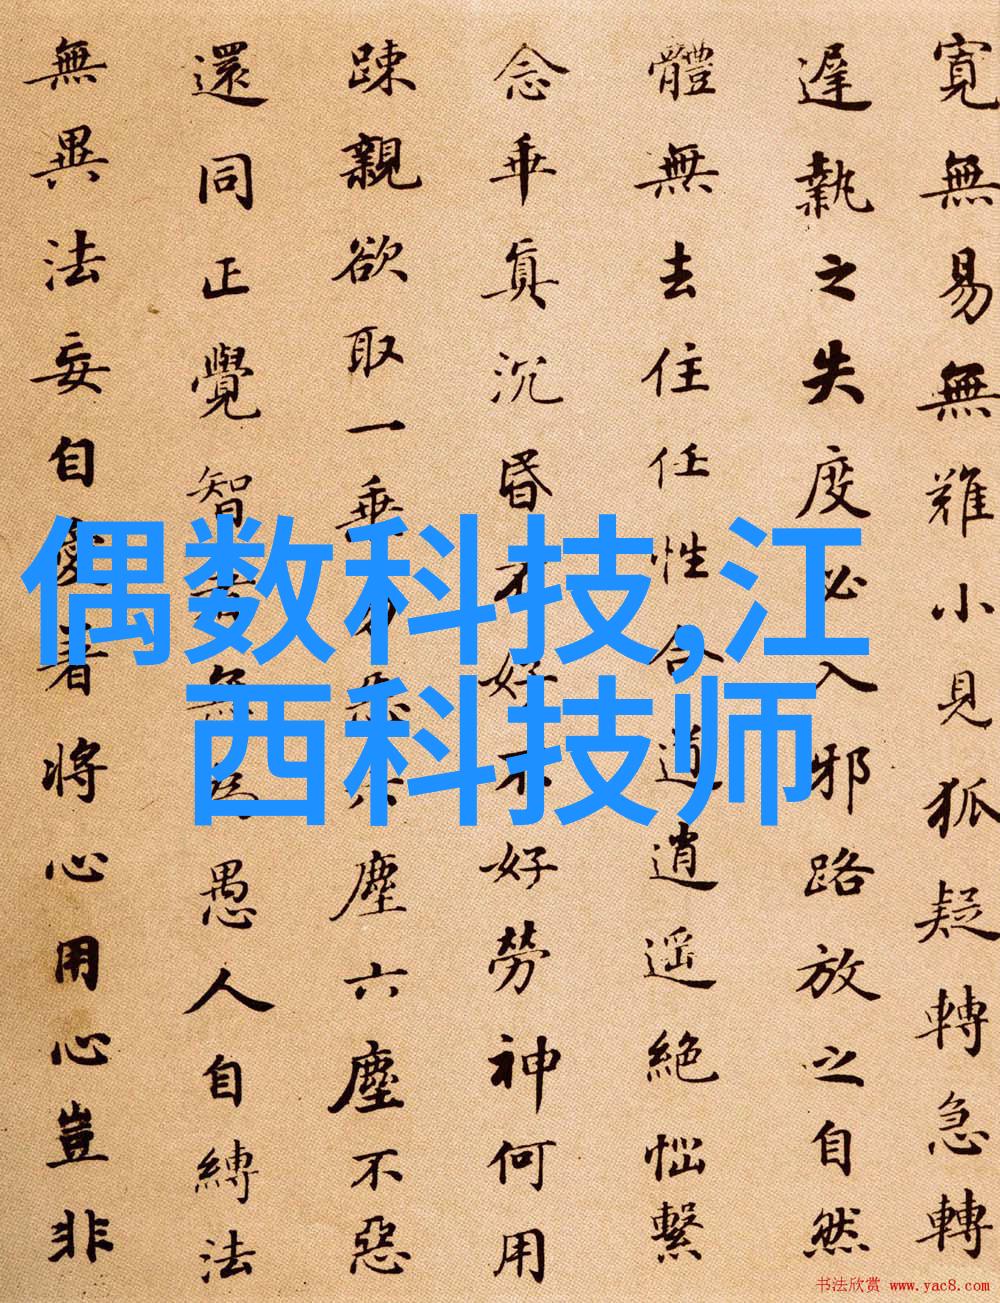 寬無易無難小見狐疑轉急轉
遲執之失度必入邪路放之自然
體無去住任性合道逍遥絶惱繫
念乖真沉昏不好不好勞神何用
踈親欲取一乗勿惡六塵六塵不惡
還同正覺智者無為愚人自縛法
無異法妄自愛著將心用心豈非
偶数科技,江
西科技师
书法欣赏 www.yac8.com